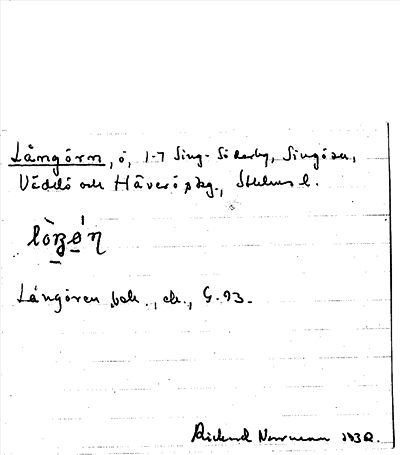 Långörn, ö, 1-7 Sing-Söderby, Singöan,
Väddö och Häverö skg., Sthlms l.
Långören bok., ek., G. 93.
Rickard Norrman 1932.